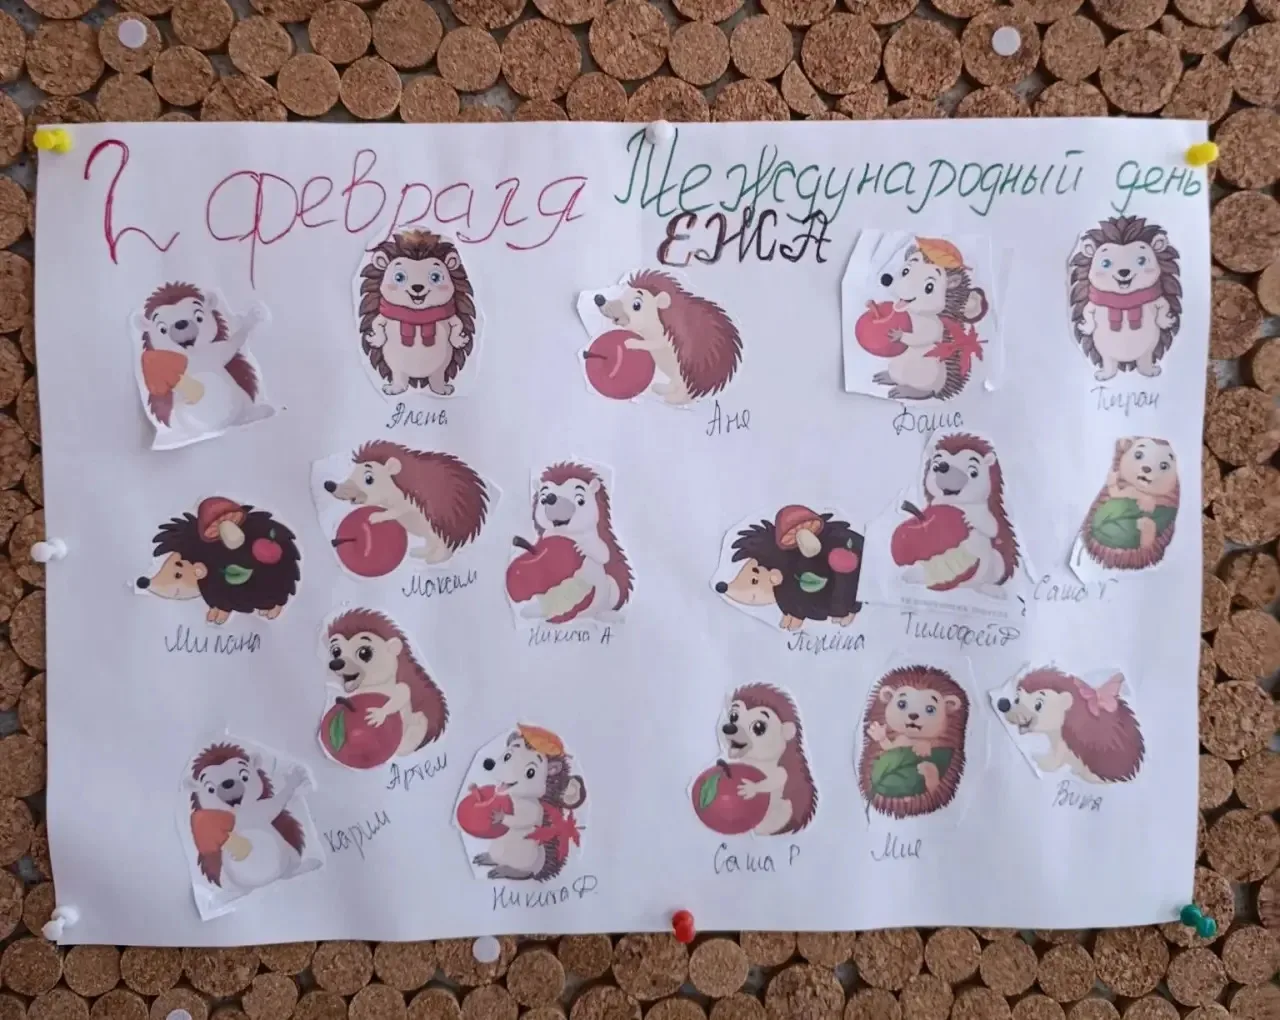 2 февраля Международный день
ЕЖА
Алена
Аня
Даша
Тигран
Милана
Максим
Никита А
Полина
Тимофей Ф
Саша Г.
Артем
Карим
Никита Ф.
Саша Р
Мия
Вика